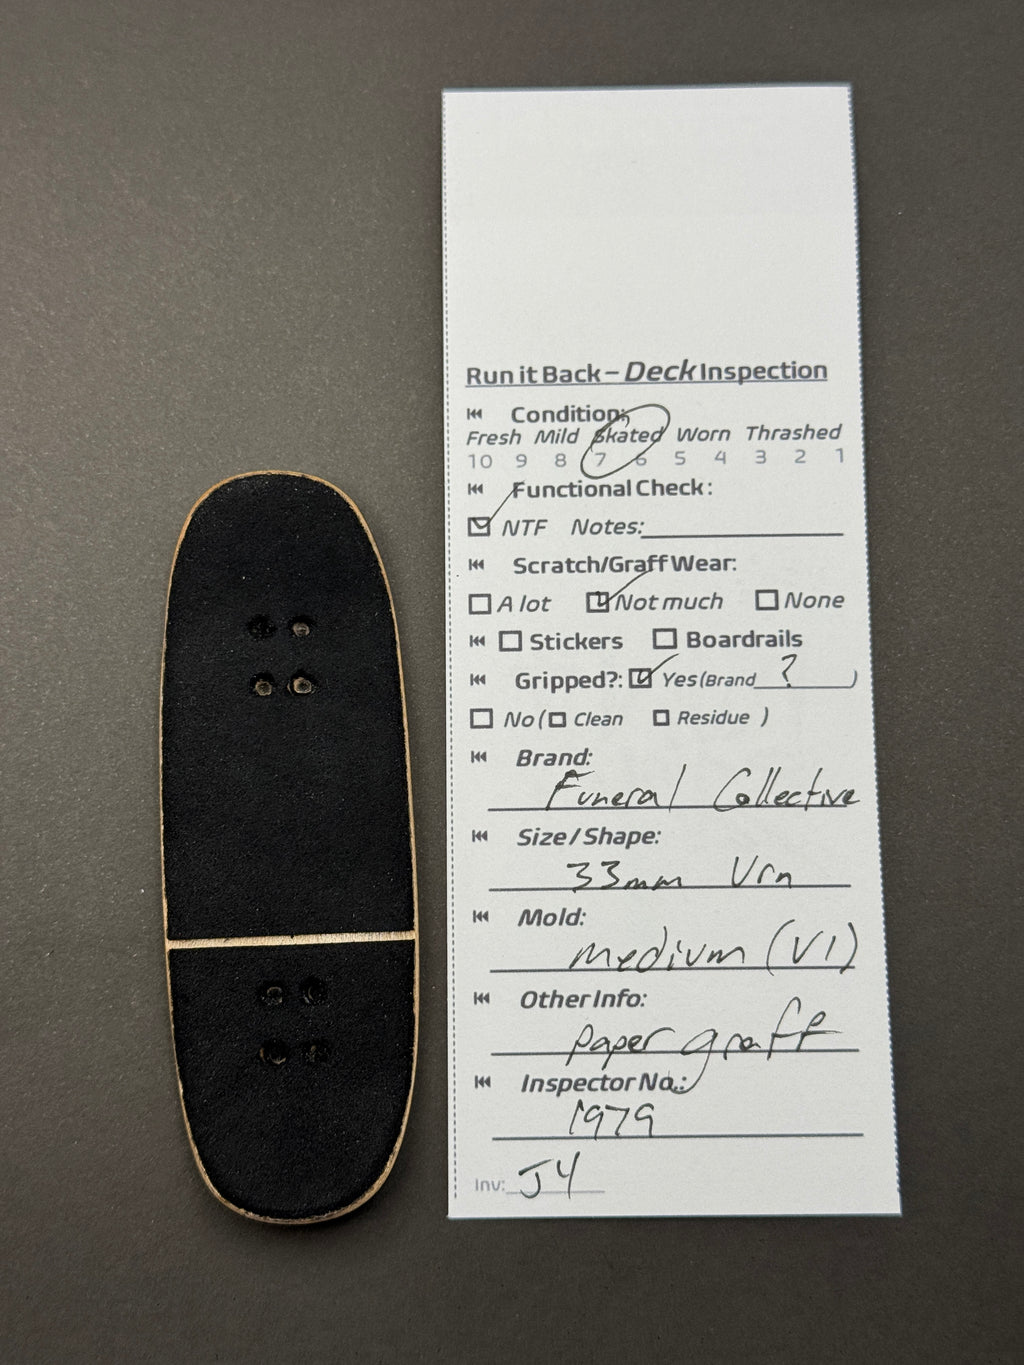 Run it Back – Deck Inspection
Condition:
Fresh Mild Skated Worn Thrashed
10 9 8 7 6 5 4 3 2 1
Functional Check:
NTF Notes:
Scratch/Graff Wear:
A lot Not much None
Stickers Boardrails
Gripped?: Yes (Brand ? )
No ( Clean Residue )
Brand:
Funeral Collective
Size / Shape:
33mm Urn
Mold:
medium (V1)
Other Info:
paper graff
Inspector No.:
1979
Inv: J4